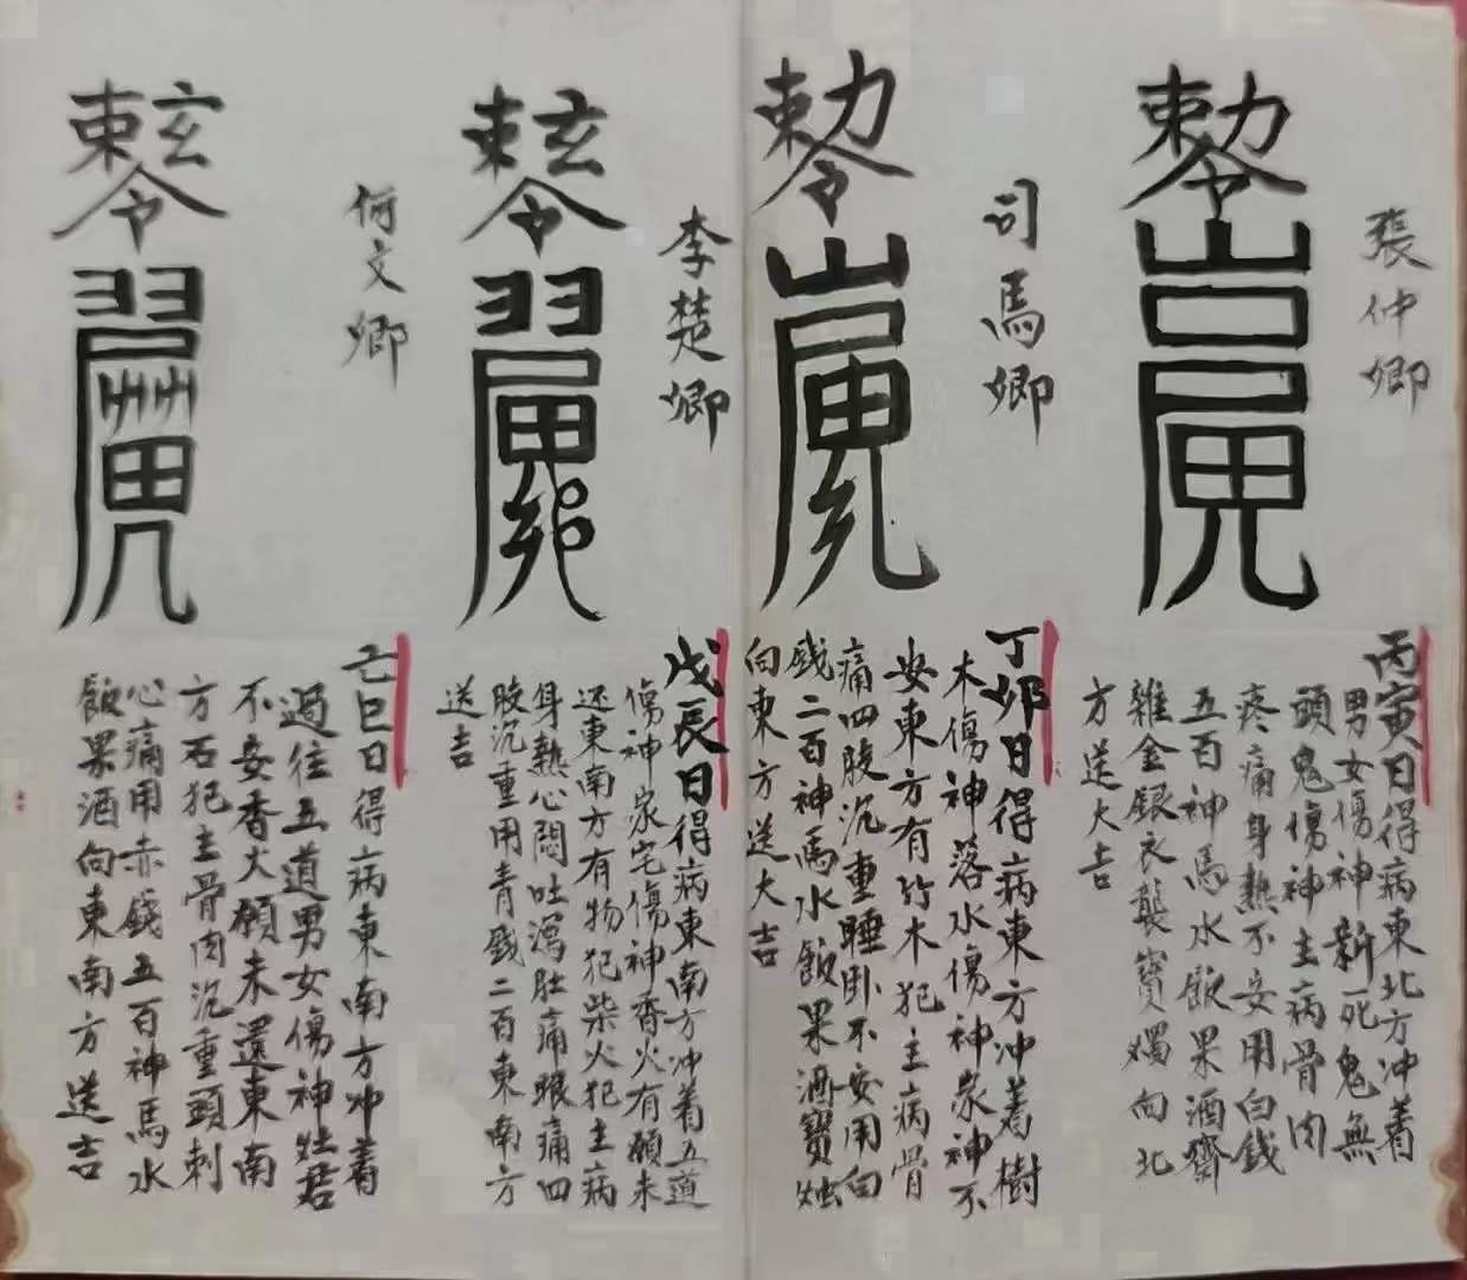 張仲卿
丙寅日得病東北方冲着
男女傷神新死鬼無
頭鬼傷神主病骨肉
疼痛身熱不安用白钱
五百神馬水飯果酒齋
雜金銀衣襲寶燭向北
方送大吉
司馬卿
丁卯日得病東方冲着樹
木傷神落水傷神家神不
安東方有竹木犯主病骨
痛四肢沉重睡卧不安用白
钱二百神馬水飯果酒寶烛
向東方送大吉
李楚卿
戊辰日得病東南方冲着五道
傷神家宅傷神香火有願未
还東南方有物犯柴火犯主病
身熱心悶吐瀉肚痛眼痛四
肢沉重用青錢二百東南方
送吉
何文卿
己巳日得病東南方冲着
過往五道男女傷神灶君
不安香火願未還東南
方石犯主骨肉沉重頭刺
心痛用赤錢五百神馬水
飯果酒向東南方送吉